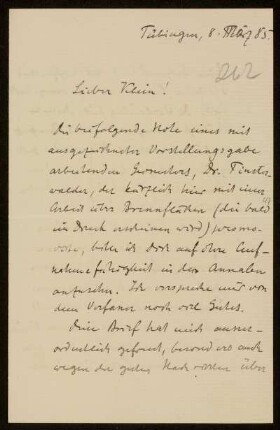 Tübingen, 8. März 85.
262
Lieber Klein!
Die beifolgende Note eines mit
ausgezeichneter Vorstellungsgabe
arbeitenden Geometers, Dr. Finster-
walder, der kürzlich hier mit einer
Arbeit über Brennflächen (die bald
im Druck erscheinen wird) promo-
virte, bitte ich Dich auf ihre Auf-
nahmefähigkeit in den Annalen
anzusehen. Ich verspreche mir von
dem Verfasser noch viel Gutes.
Dein Brief hat mich ausser-
ordentlich gefreut, besonders auch
wegen der guten Nachrichten über